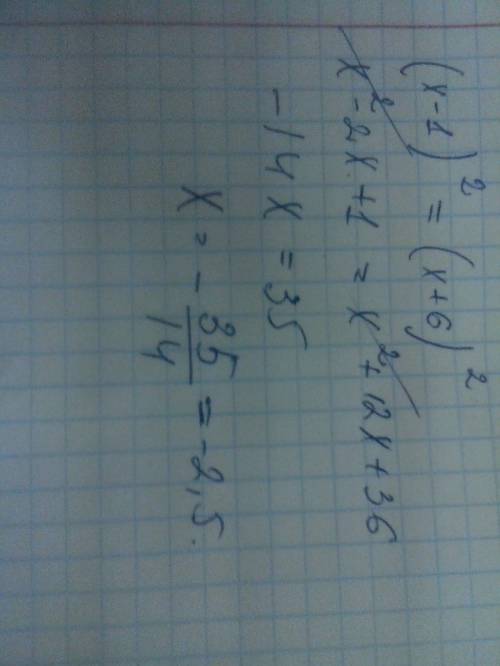 (x-1)² = (x+6)²
x²-2x+1 = x²+12x+36
-14x = 35
x = -35/14 = -2,5.